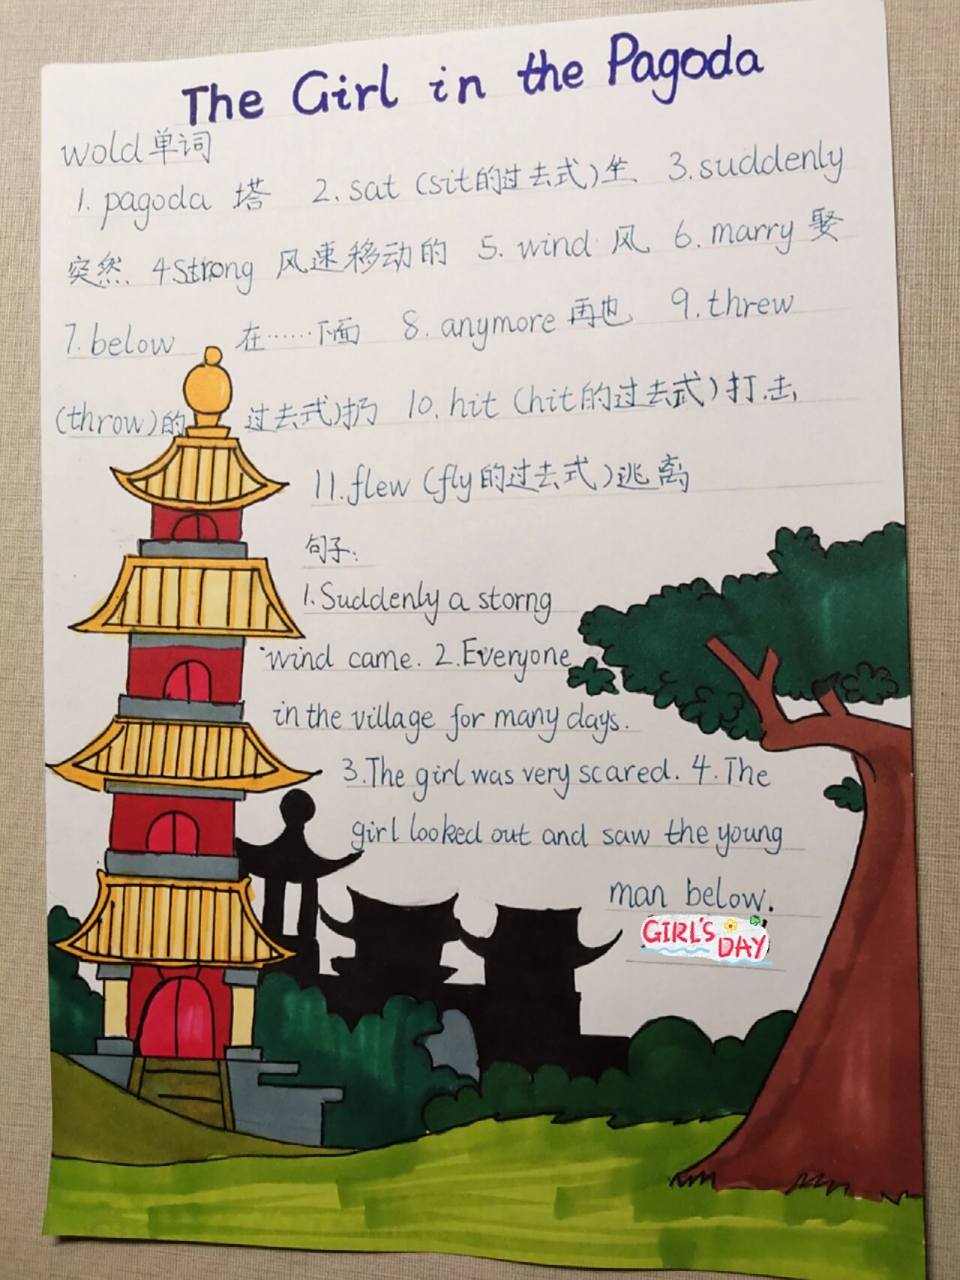 The Girl in the Pagoda
wold单词
1. pagoda 塔 2. sat (sit的过去式)坐 3. suddenly
突然. 4 Strong 风速移动的 5. wind 风 6. marry 娶
7. below 在……下面 8. anymore 再也 9. threw
(throw)的 过去式)扔 10. hit (hit的过去式)打击
11. flew (fly的过去式)逃离
句子:
1. Suddenly a storng
wind came. 2. Everyone
in the village for many days.
3. The girl was very scared. 4. The
girl looked out and saw the young
man below.
GIRL'S
DAY